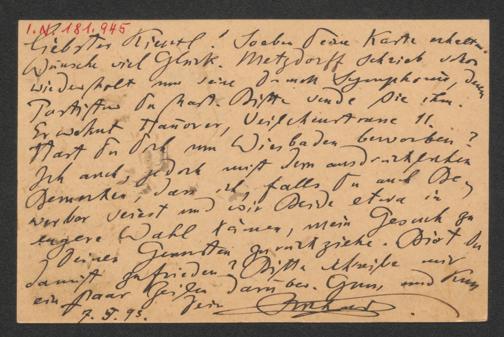 I.N. 181.945
Liebster Kienzl! Soeben Deine Karte erhalten.
Wünsche viel Glück. Metzdorff schrieb schon
wiederholt um seine Symphonie, deren
Partitur Du hast. Bitte sende sie ihm.
Er wohnt Hanover, Veilchenstrasse 11.
Hast Du Dich um Wiesbaden beworben?
Ich auch, jedoch mit dem ausdrücklichen
Bemerken, dass ich, falls Du auch Be-
werber seiest und wir Beide etwa in
engere Wahl kämen, mein Gesuch zu
Deinen Gunsten zurückziehe. Bist Du
damit zufrieden? Bitte schreibe mir
ein paar Zeilen darüber. Gruss und Kuss
Dein
7. 95.